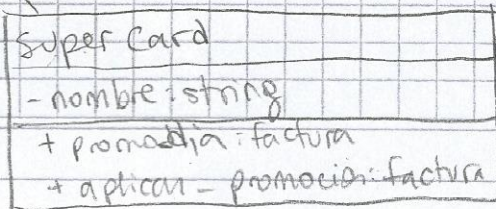 super Card
- nombre : string
+ promoddia : factura
+ aplicar - promocion : factura